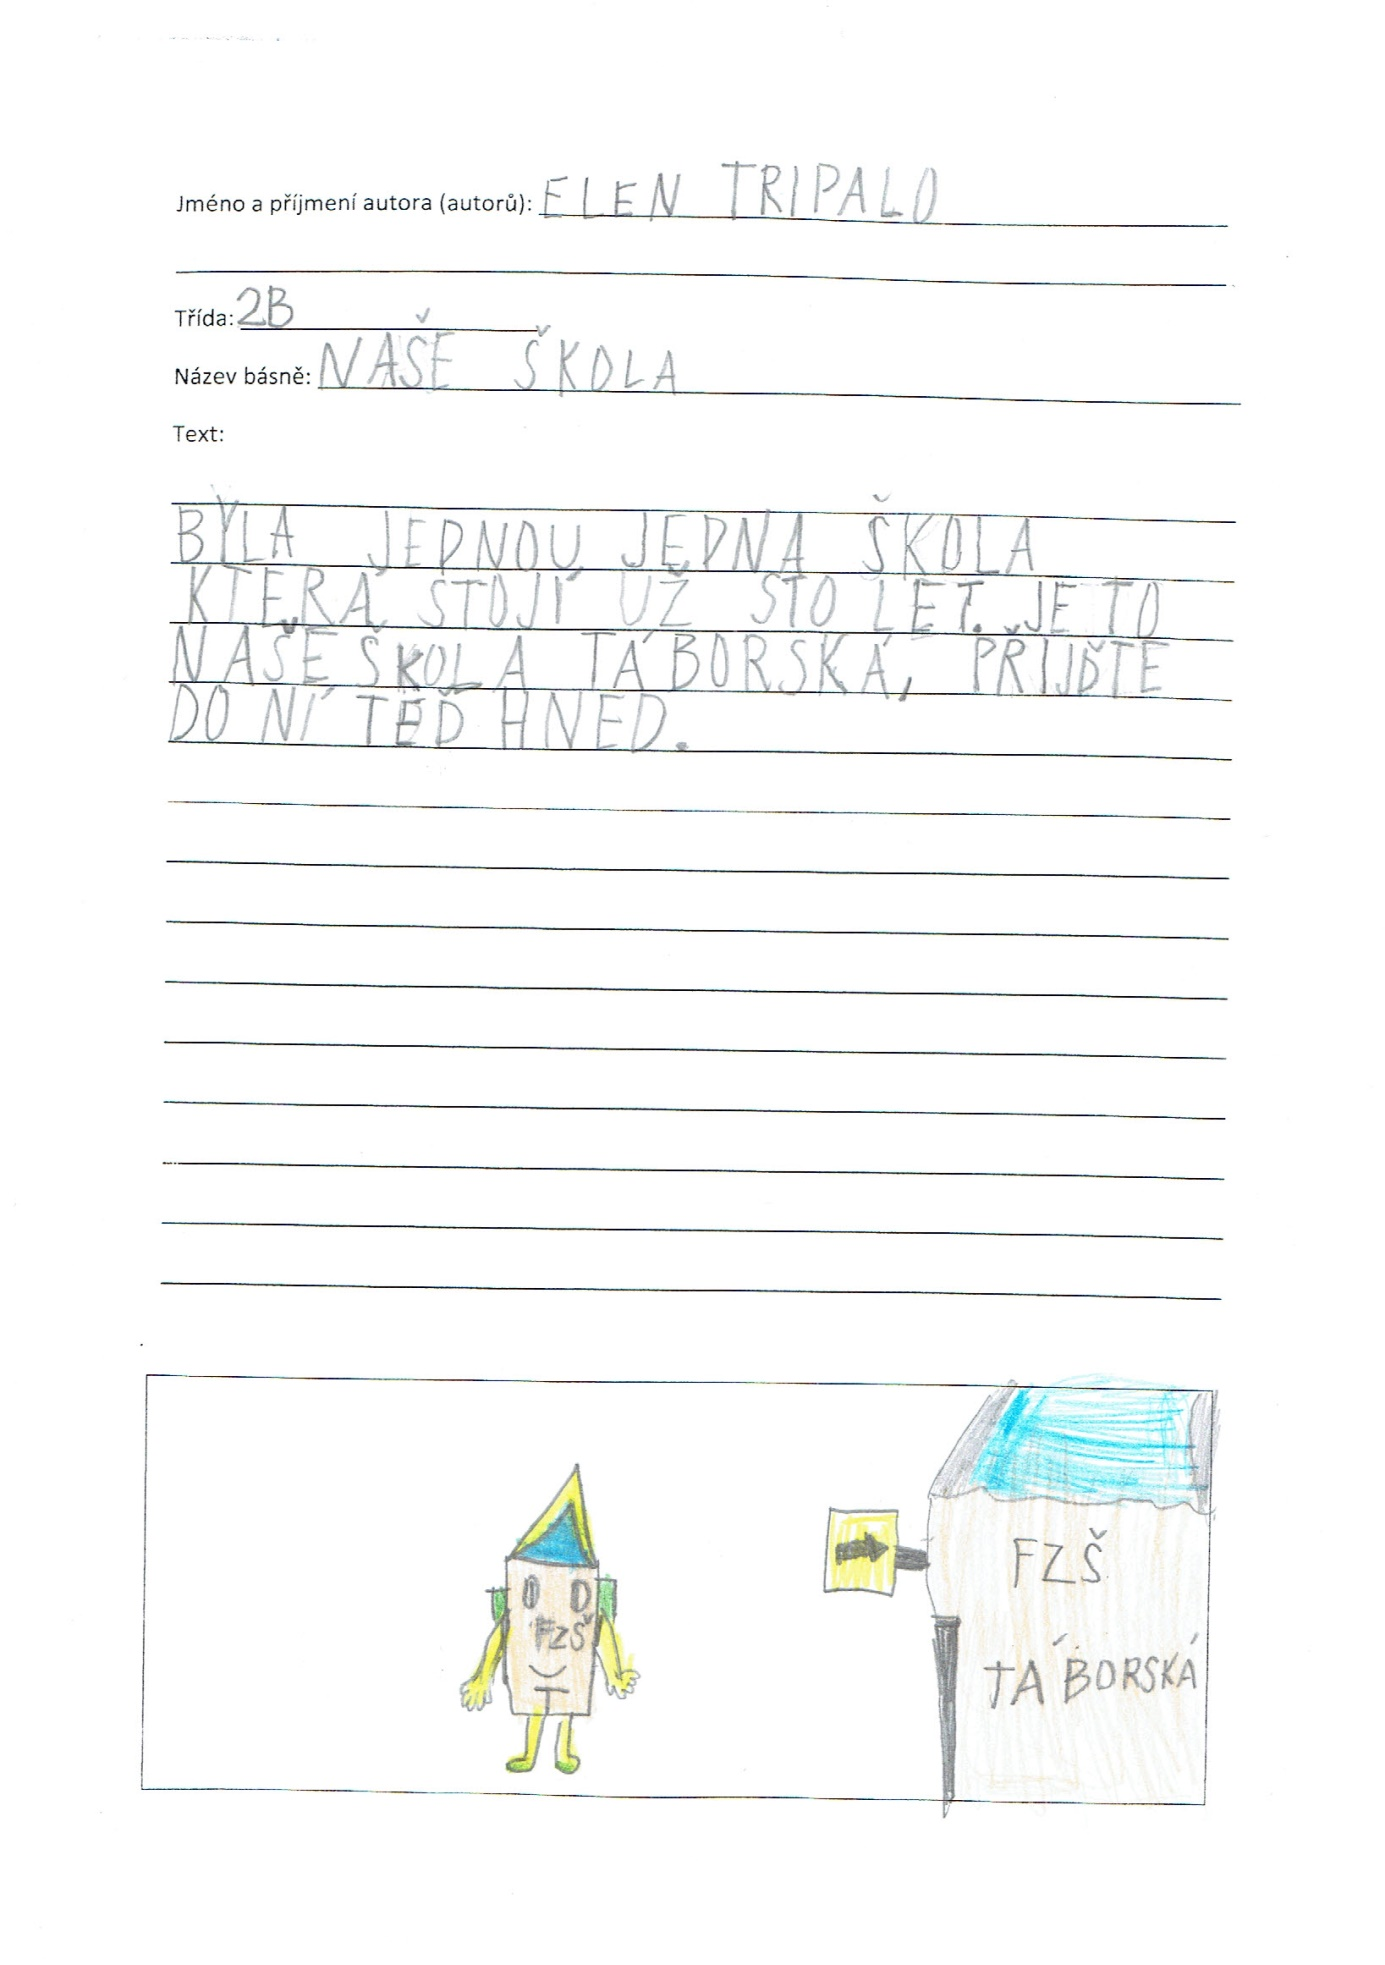 Jméno a příjmení autora (autorů): ELEN TRIPALO
Třída: 2B
Název básně: NAŠE ŠKOLA
Text:
BYLA JEDNOU JEDNA ŠKOLA
KTERÁ STOJÍ UŽ STO LET. JE TO
NAŠE ŠKOLA TÁBORSKÁ, PŘIJĎTE
DO NÍ TEĎ HNED.
FZŠ
T
FZŠ
TÁBORSKÁ